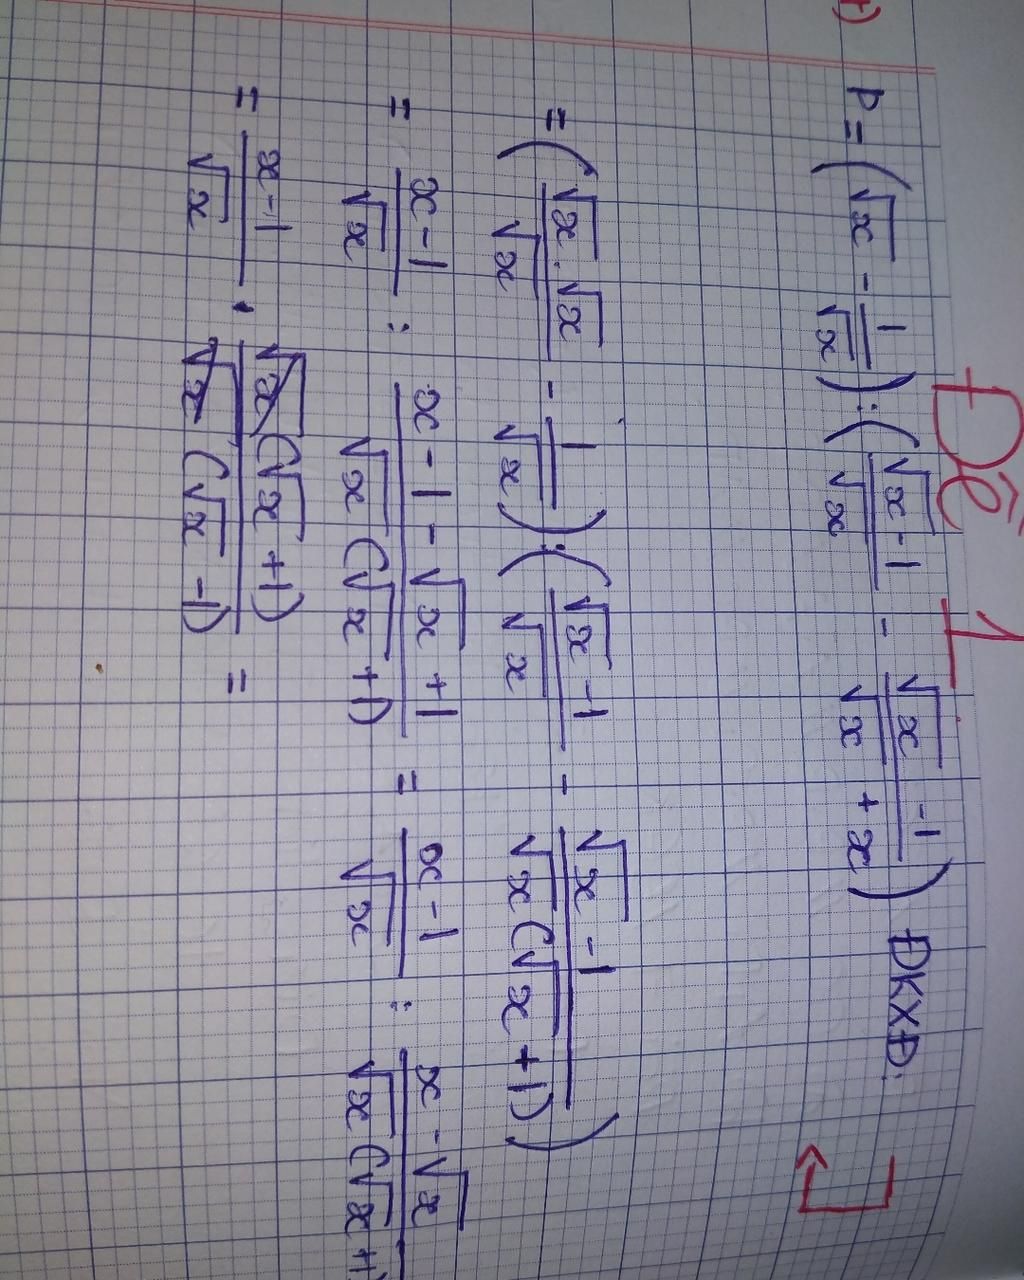 t)
Đề 1
P = (√x - 1/√x) : (√x - 1/√x - √x - 1/√x + x) ĐKXĐ:
= (√x . √x/√x - 1/√x) : (√x - 1/√x - √x - 1/√x(√x + 1))
= x - 1/√x : x - 1 - √x + 1/√x(√x + 1) = x - 1/√x : x - √x/√x(√x + 1
= x - 1/√x . √x(√x + 1)/√x(√x - 1) =